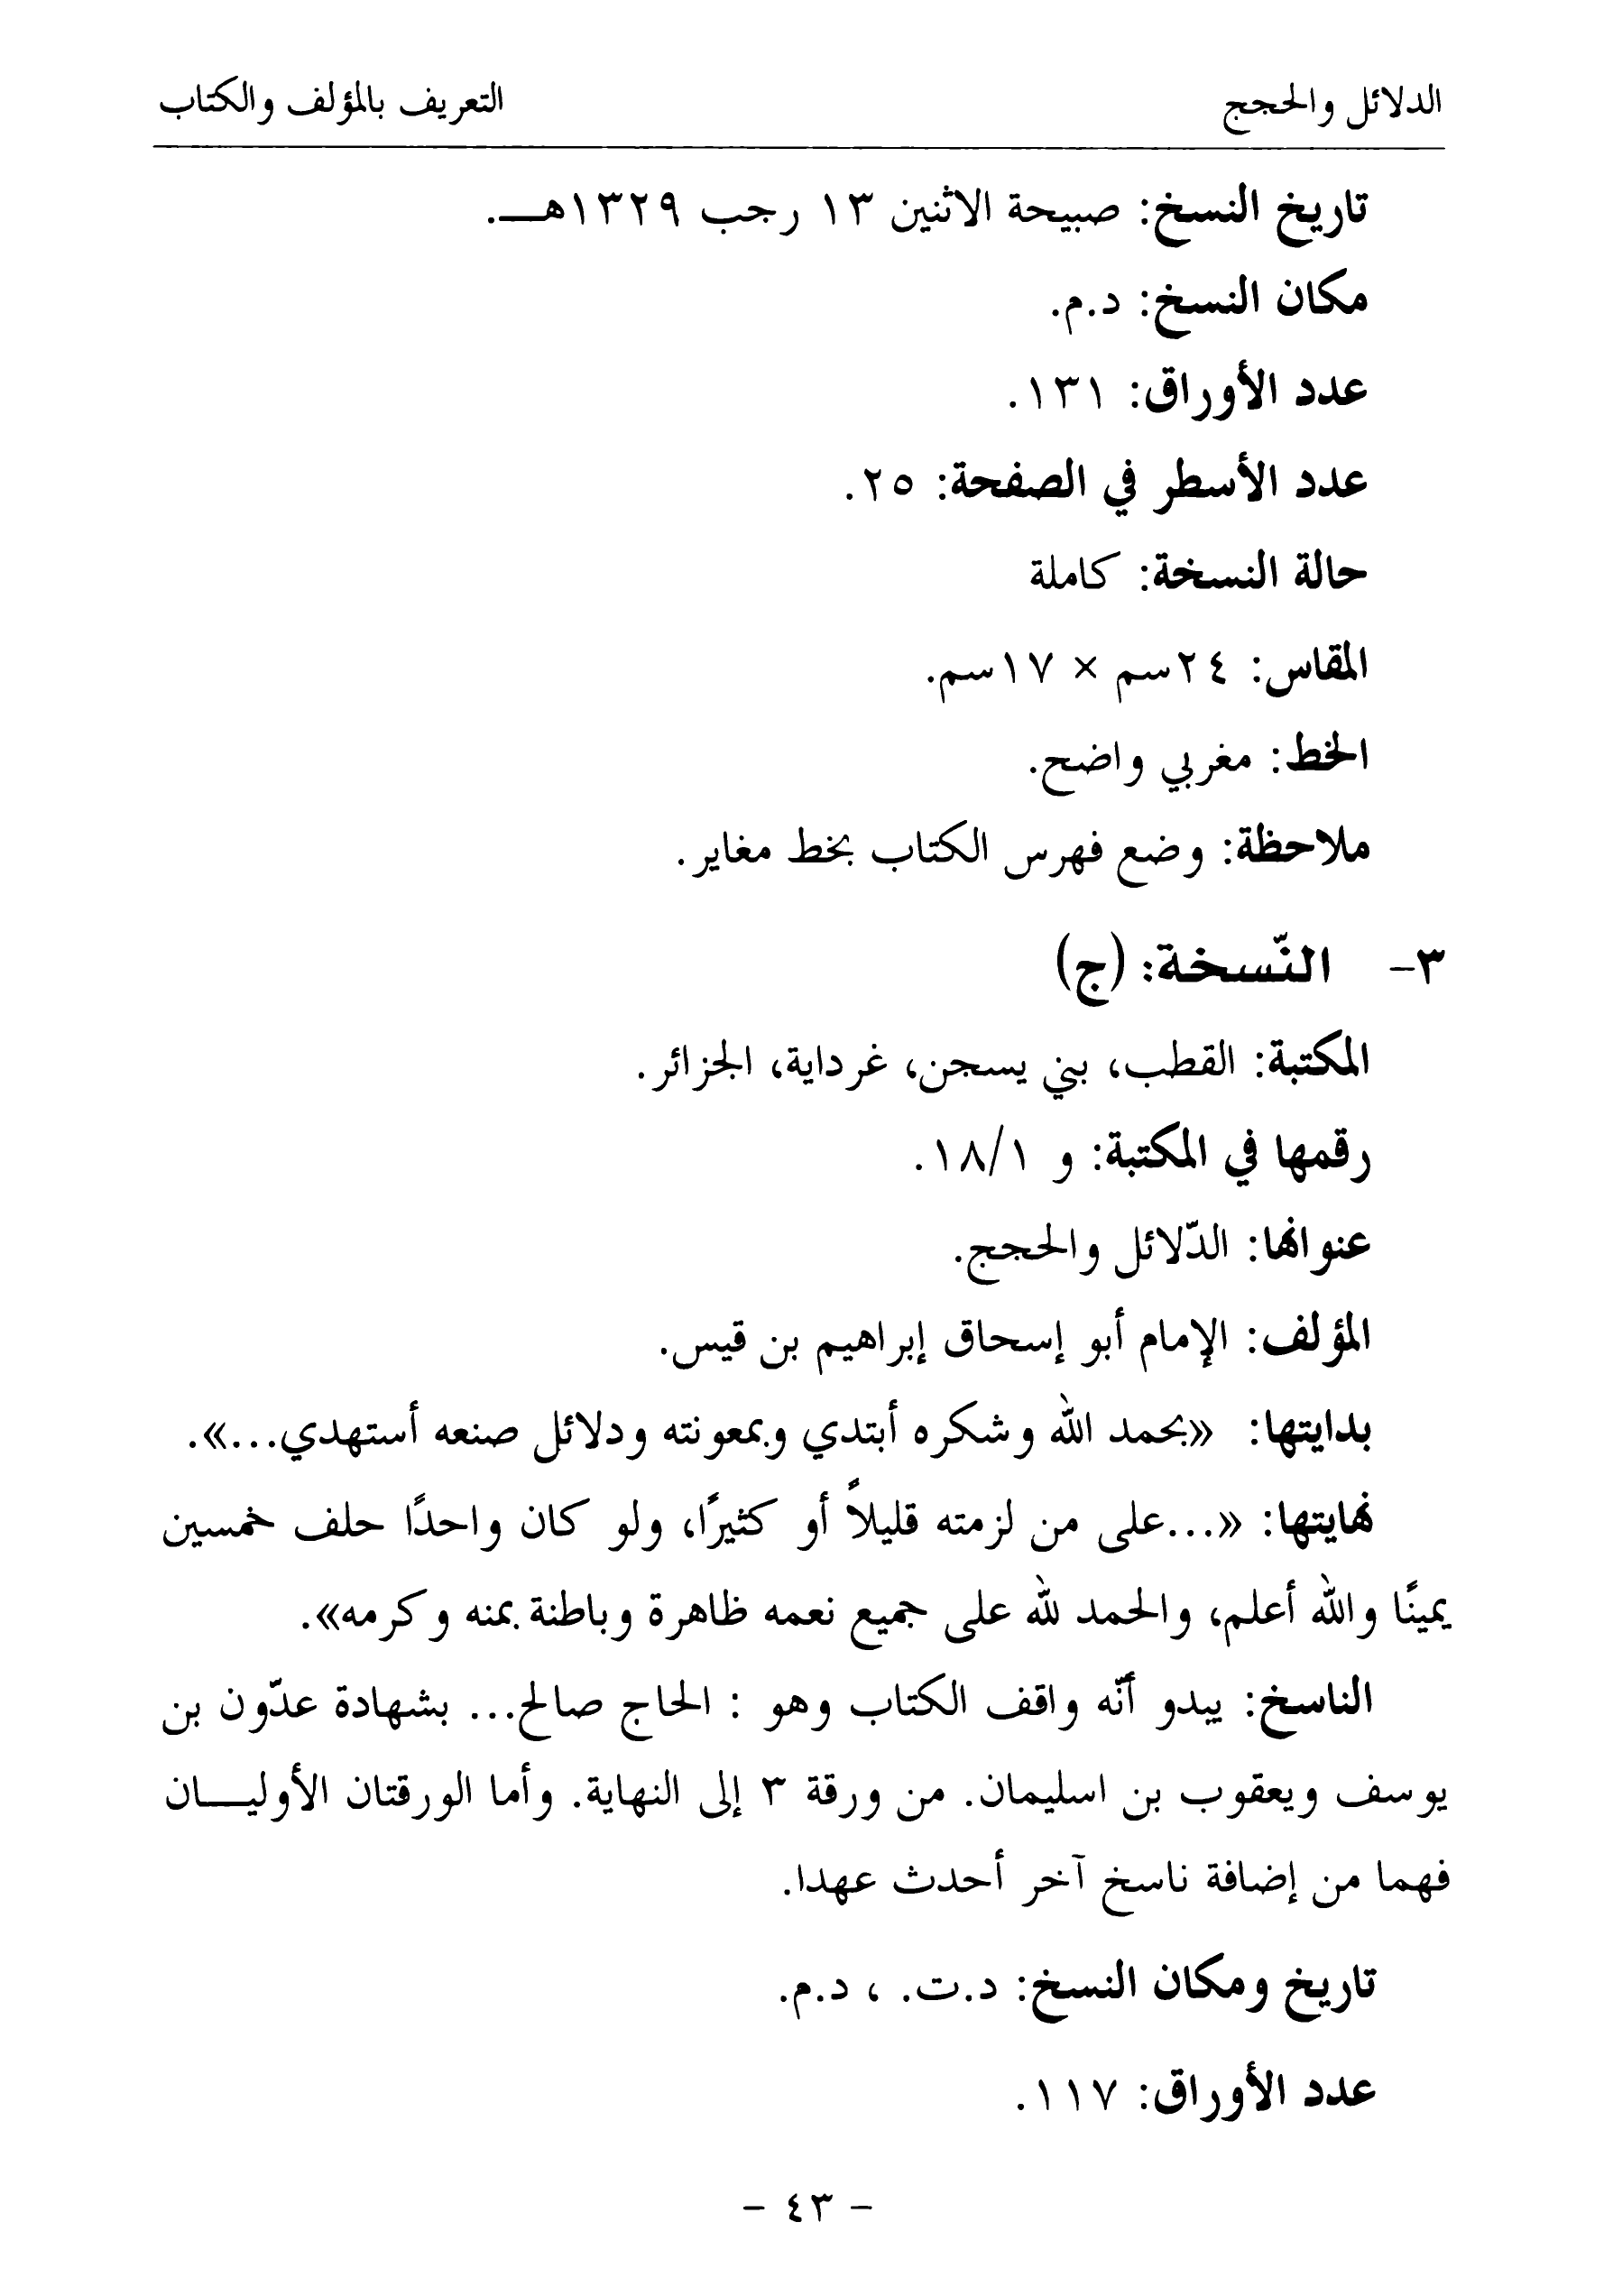 الدلائل والحجج
التعريف بالمؤلف والكتاب
تاريخ النسخ: صبيحة الاثنين ١٣ رجب ١٣٢٩هـــ.
مكان النسخ: د.م.
عدد الأوراق: ١٣١.
عدد الأسطر في الصفحة: ٢٥.
حالة النسخة: كاملة
المقاس: ٢٤سم × ١٧سم.
الخط: مغربي واضح.
ملاحظة: وضع فهرس الكتاب بخط مغاير.
٣- النّسخة: (ج)
المكتبة: القطب، بني يسجن، غرداية، الجزائر.
رقمها في المكتبة: و ١٨/١.
عنوانها: الدّلائل والحجج.
المؤلف: الإمام أبو إسحاق إبراهيم بن قيس.
بدايتها: «بحمد الله وشكره أبتدي وبمعونته ودلائل صنعه أستهدي...».
نهايتها: «...على من لزمته قليلاً أو كثيرًا، ولو كان واحدًا حلف خمسين
يمينًا والله أعلم، والحمد لله على جميع نعمه ظاهرة وباطنة بمنه وكرمه».
الناسخ: يبدو أنّه واقف الكتاب وهو : الحاج صالح... بشهادة عدّون بن
يوسف ويعقوب بن اسليمان. من ورقة ٣ إلى النهاية. وأما الورقتان الأوليـــان
فهما من إضافة ناسخ آخر أحدث عهدا.
تاريخ ومكان النسخ: د.ت. ، د.م.
عدد الأوراق: ١١٧.
- ٤٣ -